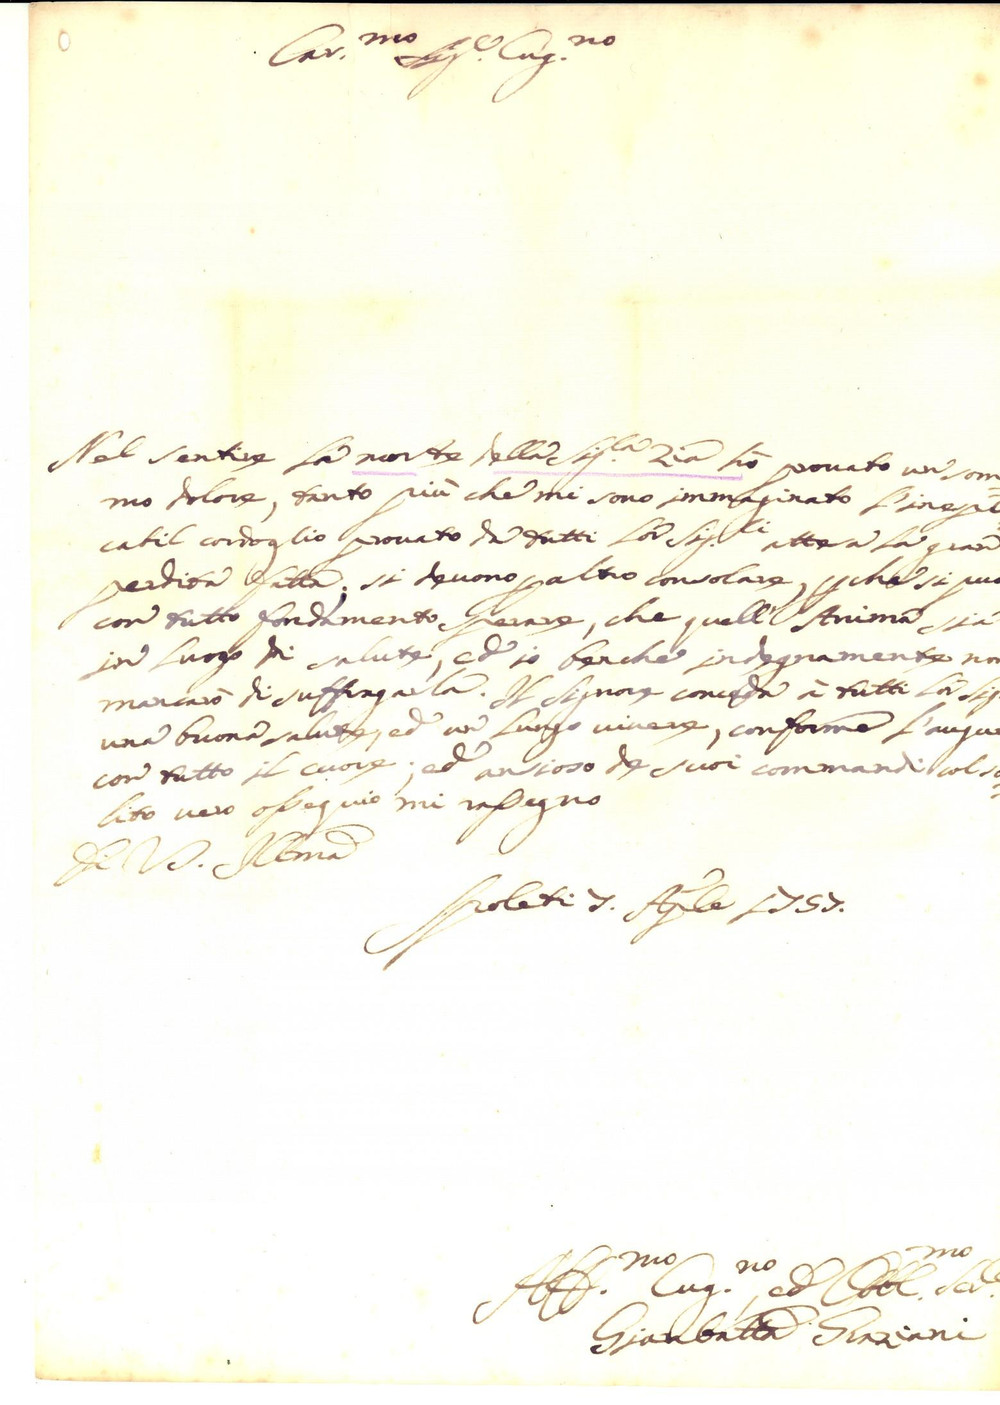 Car.mo Sig.e Cug.no
Nel sentire la morte della Sig.la Zia hò provato un som
mo dolore, tanto più che mi sono immaginato l'inespli
cabil cordoglio provato da tutti lor Sig.li attesa la gran
perdita fatta; si devono paltro consolare, pche si può
con tutto fondamento sperare, che quell'Anima sia
in luogo di salute, ed io benche indegnamente non
mancarò di suffragarla. Il Signore conceda à tutti lor Sig
una buona salute, ed un lungo vivere, conforme l'augu
con tutto il cuore; ed ansioso de suoi commandi col so
lito vero ossequio mi rassegno
Di V.S. Ill.ma
Spoleti 7. Aple 1757.
Aff.mo Cug.no, ed Obbl.mo Sed.e
Gianbatta Graziani